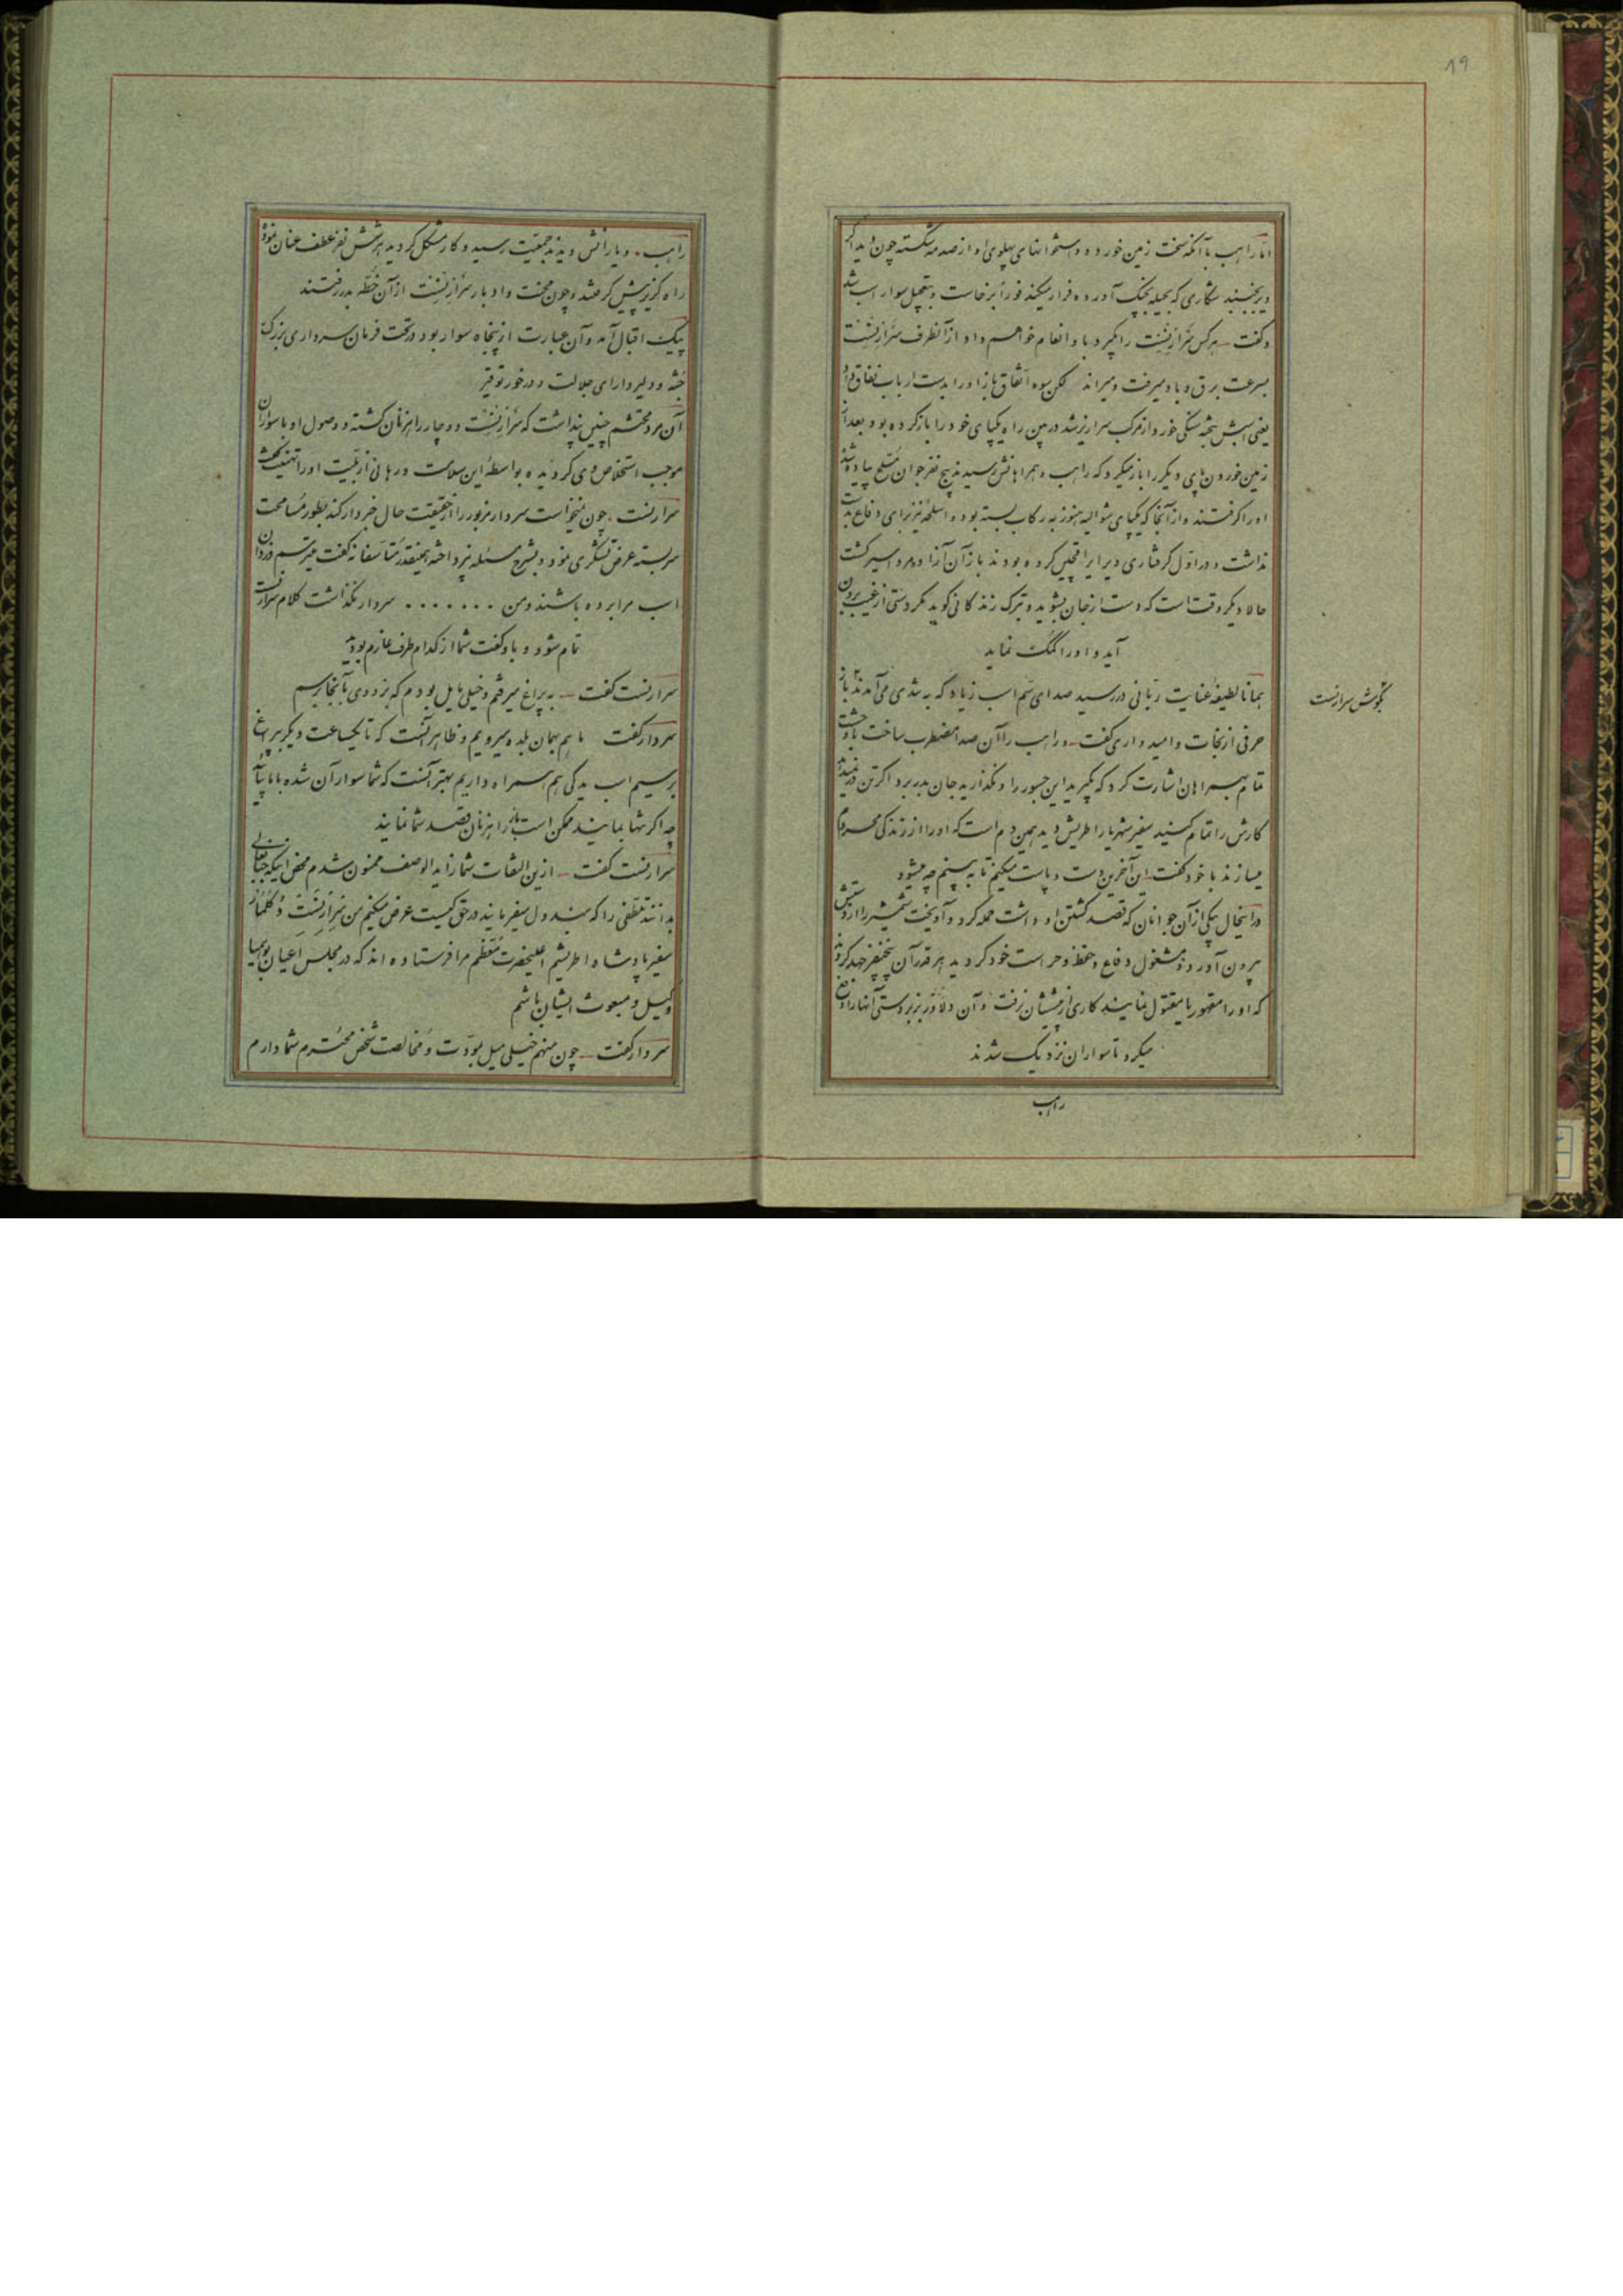 ۱۹
اما راهب با آنکه سخت زمین خورده و استخوانهای پهلوی او از صدمه شکسته چون دید اگر
دیر بجنبند شکاری که بحیله بچنگ آورده فرار میکند فوراً برخاست و بتعجیل سوار اسب شد
و گفت - هرکس سرارنست را بگیرد باو انعام خواهم داد از آنطرف سرارنست
بسرعت برق و باد میرفت و میراند لکن بسوء اتفاق باز او را بدست ارباب نفاق داد
یعنی اسبش بتخته سنگی خورد و از مرکب سرازیر شد در حین راه یکپای خود را باز کرده بود و بعد از
زمین خوردن پای دیگر را باز میکرد که راهب و همراهانش رسیدند پنج نفر جوان مسلح پیاده شده
او را گرفتند و از آنجا که یکپای شوالیه هنوز به رکاب بسته بود و اسلحه نیز برای دفاع بدست
نداشت و در اول گرفتاری ویرا یراقچین کرده بودند باز آن آزاده مرد اسیر گشت
حالا دیگر وقت است که دست از جان بشوید و ترک زندگانی گوید مگر دستی از غیب برون
آید و او را کمک نماید
همانا لطیفهٔ عنایت ربانی در رسید صدای سم اسب زیاد که به تندی می‌آمدند باز
بگوش سرارنست
حرفی از نجات و امیدواری گفت - و راهب را آن صدا مضطرب ساخت با وحشت
تمام بهمراهان اشارت کرد که بگیرید این جسور را و نگذارید جان بدر برد اگر تن در نمیدهد
کارش را تمام کنید سفیر شهریار اطریش دید همین دم است که او را از زندگی محروم
میسازند با خود گفت - این آخرین دست و پاست میکنم تا به بینم چه میشود
در اینحال یکی از آن جوانان که قصد کشتن او داشت حمله کرد و آویخت شمشیر را از دستش
بیرون آورده مشغول دفاع و حفظ و حراست خود گردید هر قدر آن پنج نفر جهد کردند
که او را مقهور یا مقتول نمایند کاری از پیششان نرفت و آن دلاور بزبردستی آنها را دفع
میکرد تا سواران نزدیک شدند
راهب
راهب و یارانش دیدند جمعیت رسید و کار مشکل گردید هر شش نفر عطف عنان نموده
راه گریز پیش گرفتند و چون محنت و ادبار سرارنست از آن خطه بدر رفتند
پیک اقبال آمد و آن عبارت از پنجاه سوار بود در تحت فرمان سرداری بزرگ
جثه و دلیر دارای جلالت و در خور توقیر
آن مرد محتشم چنین پنداشت که سرارنست دوچار راهزنان گشته و وصول او با سواران
موجب استخلاص وی گردیده بواسطهٔ این سلامت و رهائی از بلیت او را تهنیت گفت
سرارنست چون نمیخواست سردار مزبور را از حقیقت حال خبردار کند بطور مسامحت
سربسته عرض تشکری نمود و بشرح مسئله نپرداخته همینقدر متأسفانه گفت میترسم دزدان
اسب مرا برده باشند و من ....... سردار نگذاشت کلام سرارنست
تمام شود و باو گفت شما از کدام طرف عازم بودید
سرارنست گفت - به پراغ میرفتم و خیلی مایل بودم که بزودی بآنجا برسم
سردار گفت ما هم بهمان بلده میرویم و ظاهر آنست که تا یکساعت دیگر به پراغ
برسیم اسب یدکی هم همراه داریم بهتر آنست که شما سوار آن شده با ما بیائید
چه اگر تنها بمانید ممکن است باز راهزنان قصد شما نمایند
سرارنست گفت - ازین التفات شما زاید الوصف ممنون شدم محض اینکه جنابعالی
بدانند تلطفی را که مبذول میفرمایند در حق کیست عرض میکنم من سرارنست دُ کلماژ
سفیر پادشاه اطریشم اعلیحضرت معظم مرا فرستاده‌اند که در مجلس اعیان بوهمیا
وکیل و مبعوث ایشان باشم
سردار گفت - چون منهم خیلی میل بمودت و مخالصت شخص محترم شما دارم